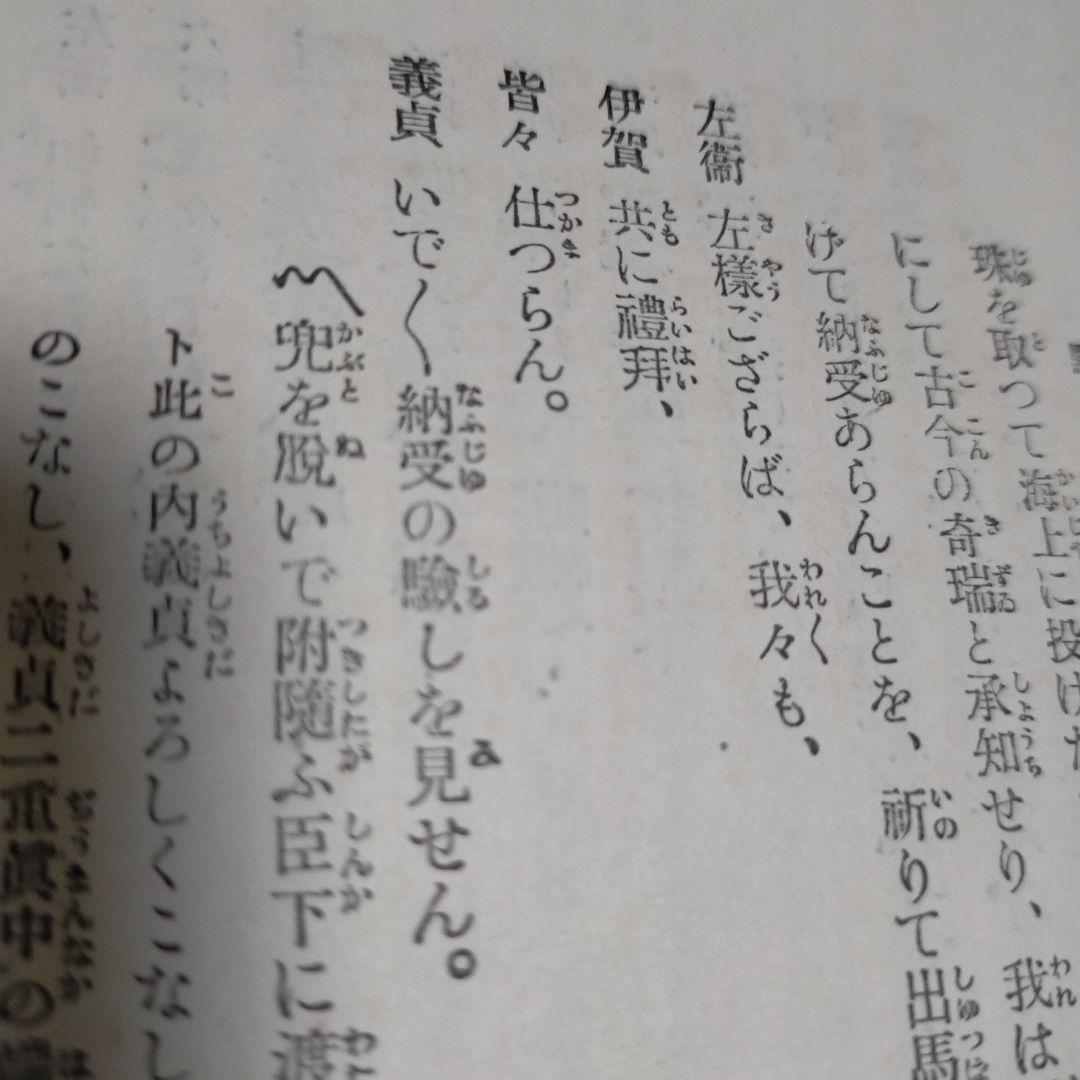 珠を取つて海上に投け
にして古今の奇瑞と承知せり、我は
げて納受あらんことを、祈りて出馬
左衞 左樣ござらば、我々も、
伊賀 共に禮拜、
皆々 仕つらん。
義貞 いで〱納受の驗しを見せん。
〽兜を脫いで附隨ふ臣下に渡
ト此の內義貞よろしくこなし
のこなし、義貞二重眞中の